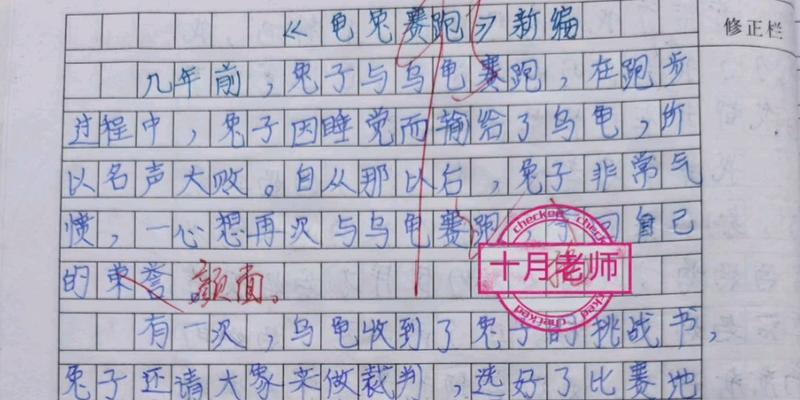 《龟兔赛跑》新编
修正栏
几年前，兔子与乌龟赛跑，在跑步
过程中，兔子因睡觉而输给了乌龟，所
以名声大败。自从那以后，兔子非常气
愤，一心想再次与乌龟赛跑，回自己
的荣誉 颜面。
checked
十月老师
checked
有一次，乌龟收到了兔子的挑战书，
兔子还请大象来做裁判，选好了比赛地